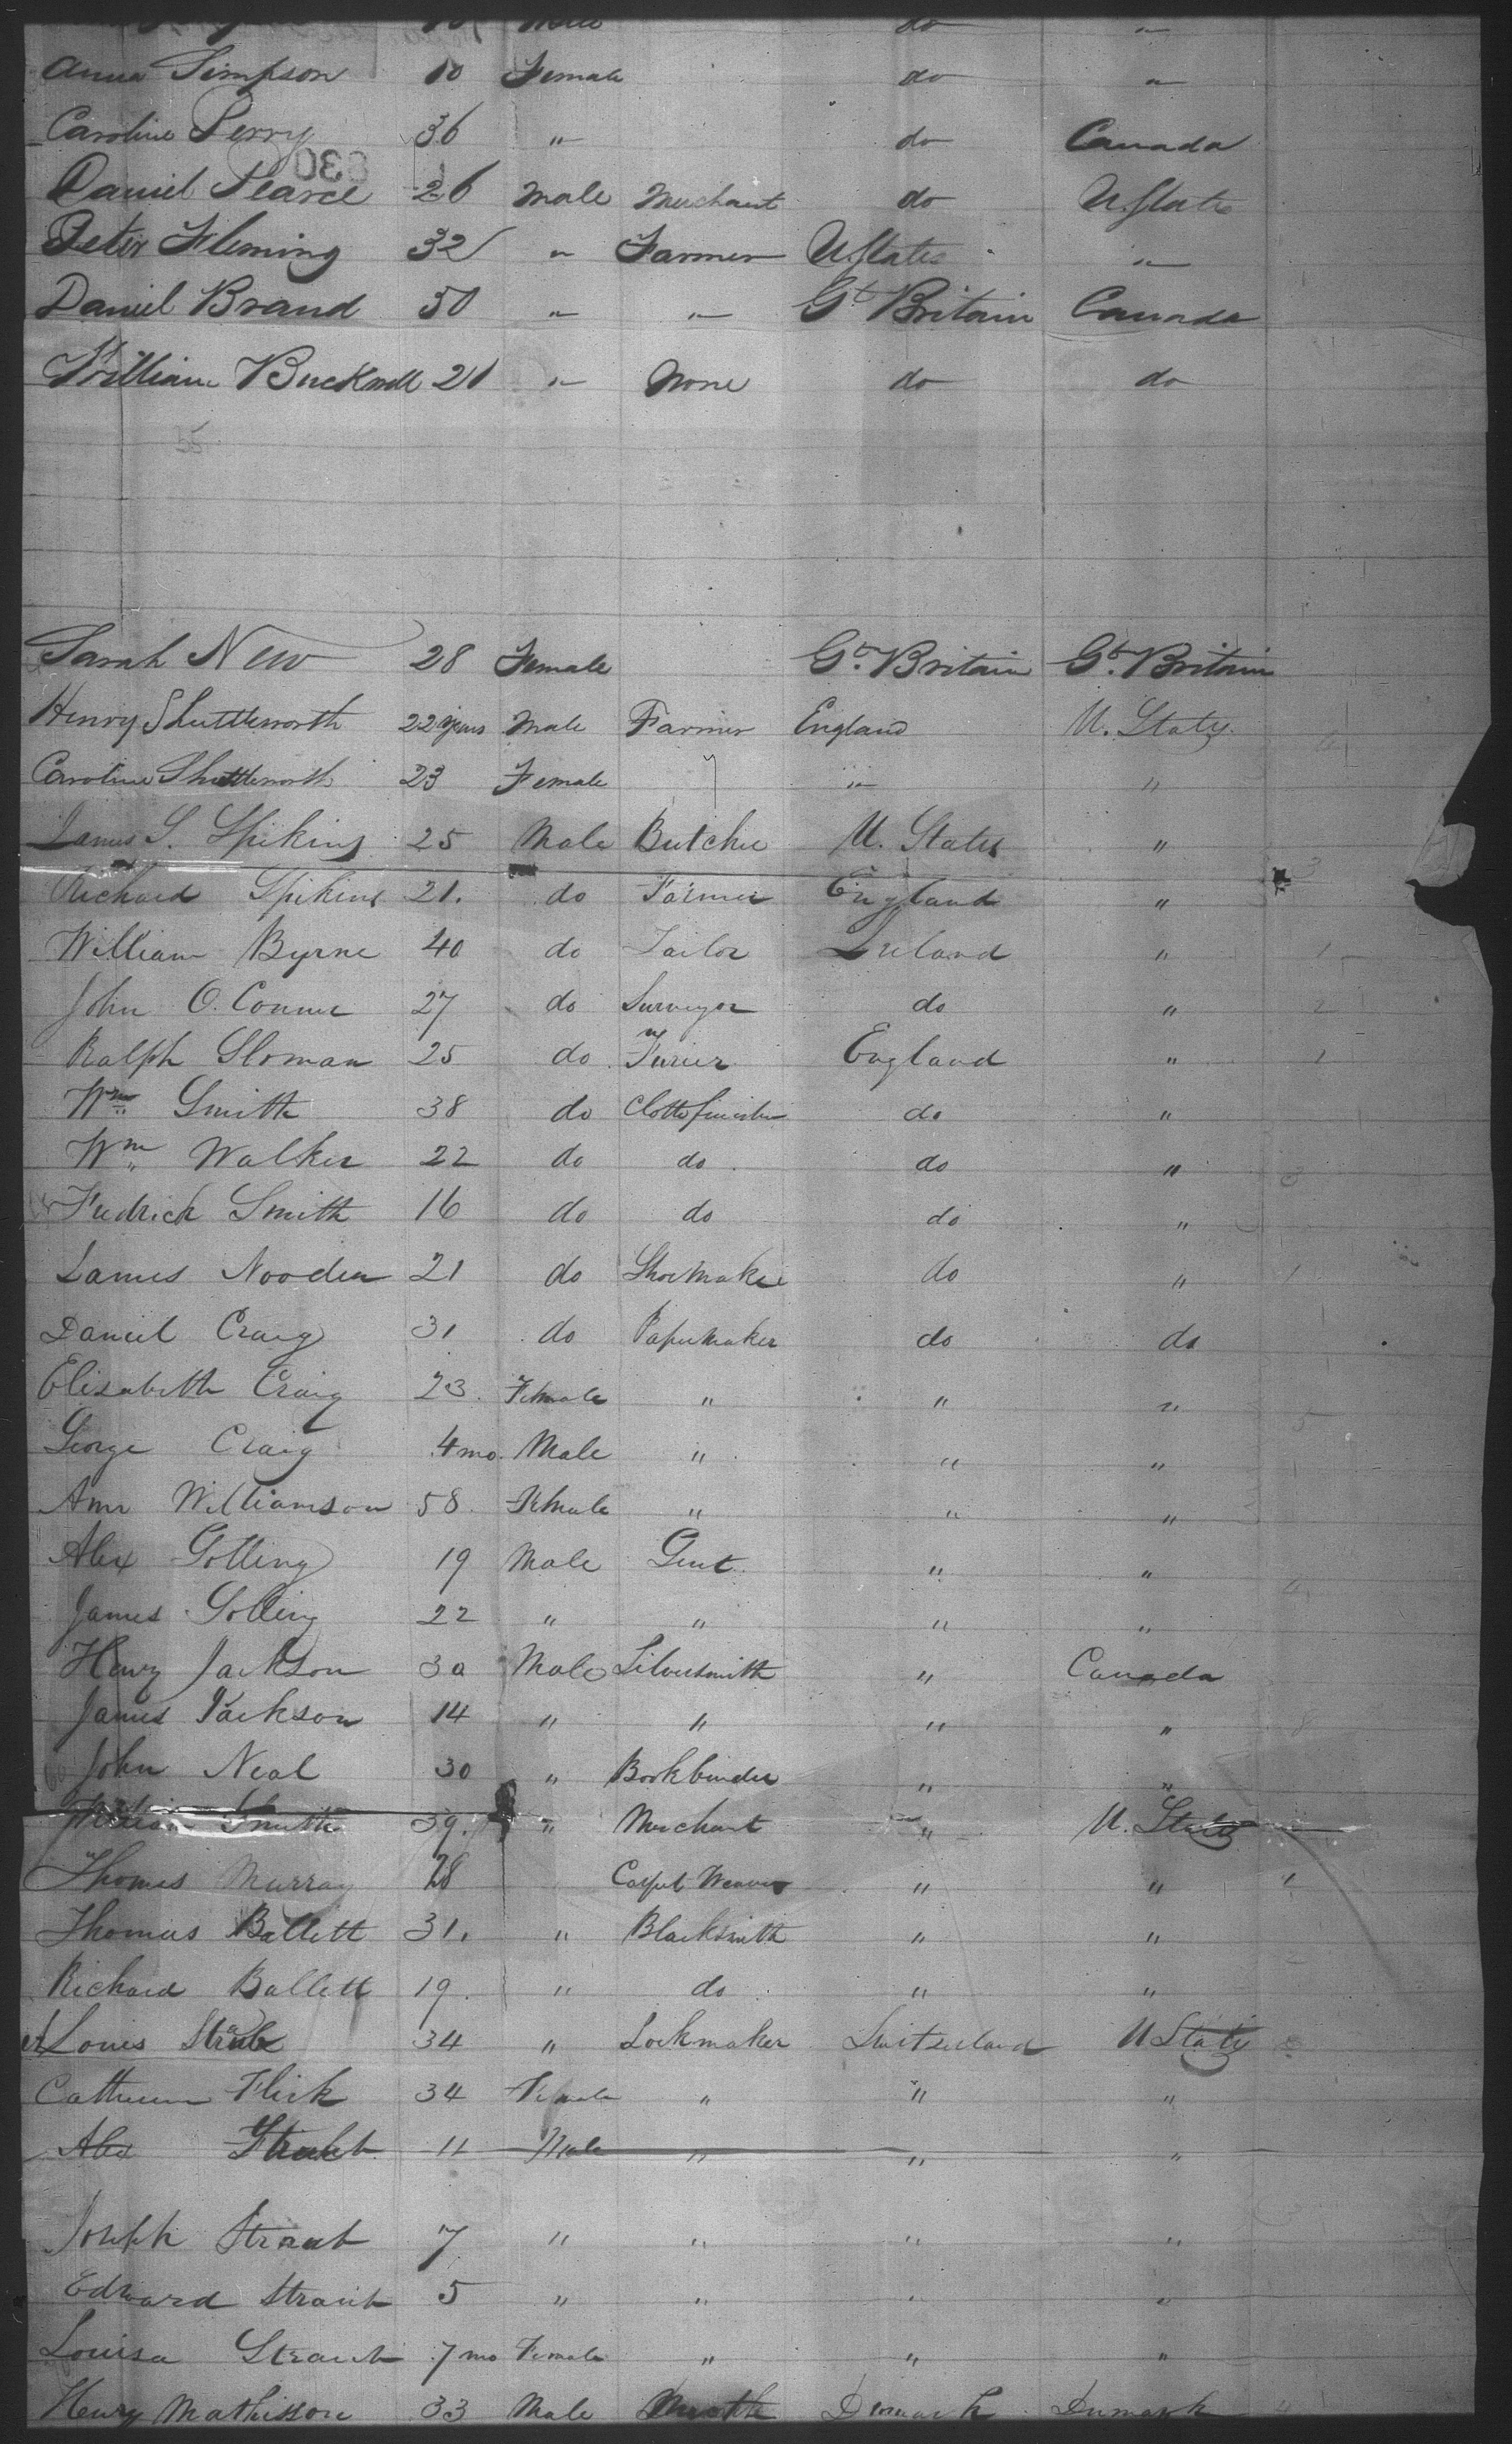 Male do "
Anna Simpson 10 Female do "
Caroline Perry 36 " do Canada
Daniel Pearce 26 Male Merchant do U States
Peter Fleming 32 " Farmer U States "
Daniel Brand 50 " " Gt Britain Canada
William Bucknell 21 " None do do
Sarah New 28 Female Gt. Britain Gt. Britain
Henry Shuttleworth 22 years Male Farmer England U. States
Caroline Shuttleworth 23 Female " "
James S. Spikins 25 Male Butcher U. States "
Richard Spikins 21. do Farmer England "
William Byrne 40 do Tailor Ireland " 1
John O. Conner 27 do Surveyor do " 2
Ralph Sloman 25 do Furier England " 1
Wm Smith 38 do Cloth finisher do "
Wm Walker 22 do do do " 3
Fredrick Smith 16 do do do "
James Nooden 21 do Shoemaker do " 1
Daniel Craig 31 do Papermaker do do
Elisabeth Craig 23. Female " " "
George Craig 4 mo. Male " " "
Ann Williamson 58. Female " " "
Alex Golling 19 Male Gent. " "
James Golling 22 " " " "
Henry Jackson 30 Male Silversmith " Canada
James Jackson 14 " " " "
John Neal 30 " Bookbinder " "
William Smith 39. " Merchant " U. States
Thomas Murray 28 Carpet Weaver " "
Thomas Ballett 31. " Blacksmith " "
Richard Ballett 19. " do " "
Louis Straub 34 " Lockmaker Switzerland U States
Cathrun Flick 34 Female " " "
Alex Straub 11 Male " " "
Joseph Straub 7 " " " "
Edward Straub 5 " " " "
Louisa Straub 7 mo Female " " "
Henry Mathisson 33 Male Denmark Denmark